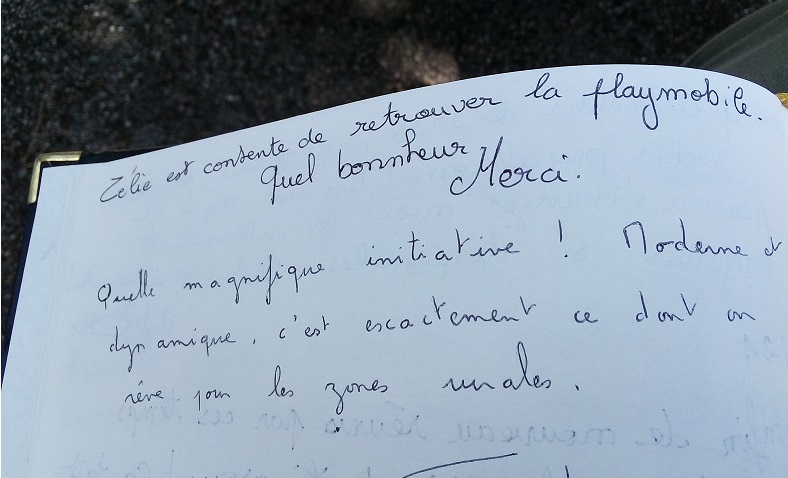 Zélie est contente de retrouver la playmobile.
Quel bonnheur Merci.
Quelle magnifique initiative ! Moderne et
dynamique, c'est escactement ce dont on
rêve pour les zones rurales.